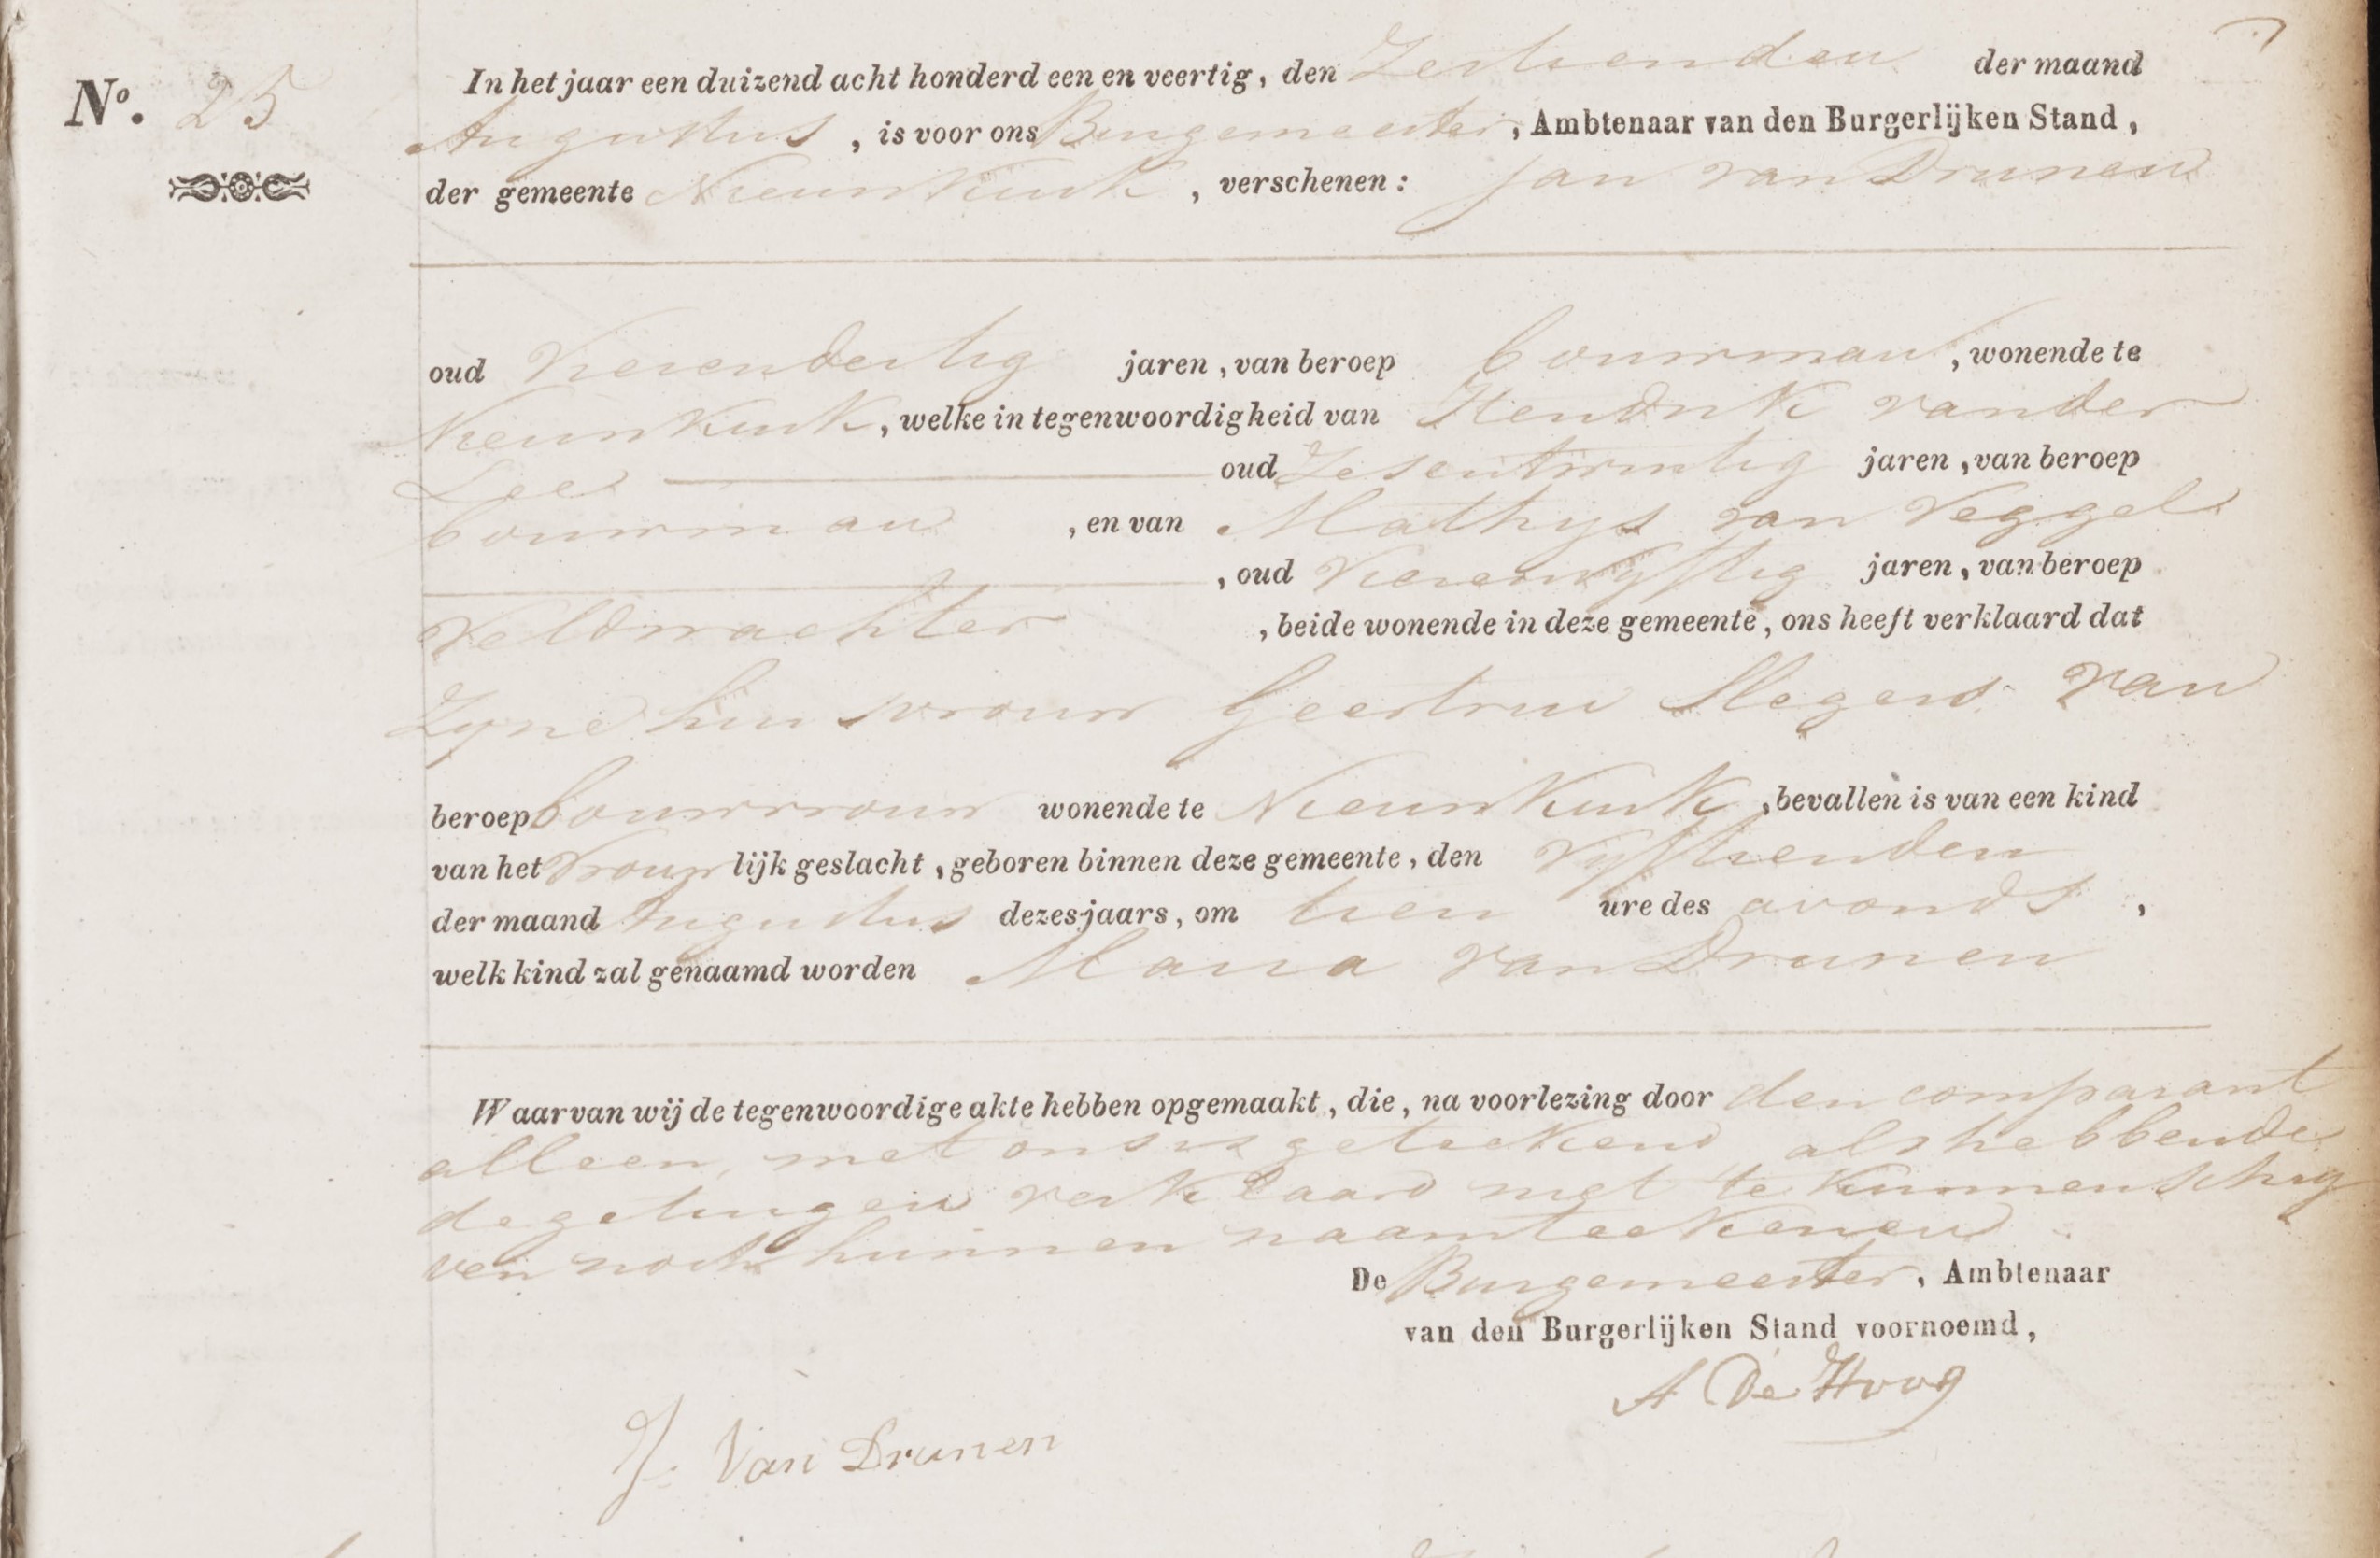 Nº. 25
In het jaar een duizend acht honderd een en veertig, den Zestienden der maand
Augustus, is voor ons Burgemeester, Ambtenaar van den Burgerlijken Stand,
der gemeente Nieuwkuik, verschenen: Jan van Drunen
oud Vierendertig jaren, van beroep bouwman, wonende te
Nieuwkuik, welke in tegenwoordigheid van Hendrik vander
Lee oud Zesentwintig jaren, van beroep
bouwman, en van Mathys van Veggel
, oud Vierenvyftig jaren, van beroep
Veldwachter, beide wonende in deze gemeente, ons heeft verklaard dat
Zyne huisvrouw Geertrui Slegers van
beroep bouwvrouw wonende te Nieuwkuik, bevallen is van een kind
van het Vrouwlijk geslacht, geboren binnen deze gemeente, den Vyftienden
der maand Augustus dezes jaars, om tien ure des avonds,
welk kind zal genaamd worden Maria van Drunen
Waarvan wij de tegenwoordige akte hebben opgemaakt, die, na voorlezing door den comparant
alleen, met ons is geteekend als hebbende
de getuigen verklaard niet te kunnen schry
ven noch hunnen naamteekenen
De Burgemeester, Ambtenaar
van den Burgerlijken Stand voornoemd,
A De Hoog
J. Van Drunen